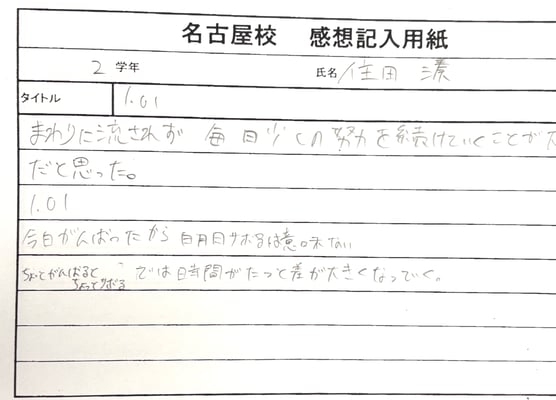 名古屋校 感想記入用紙
2 学年 氏名 住田 湊
タイトル 1.01
まわりに流されず 毎日少しの努力を続けていくことが大
だと思った。
1.01
今日がんばったから明日サボるは意味ない
ちょっとがんばると ちょっとサボる では時間がたつと差が大きくなっていく。